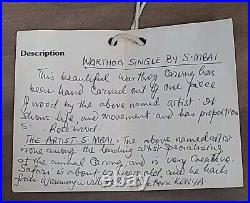 Description
WARTHOG SINGLE BY S. MBAI
This beautiful Warthog Carving has
been hand carved out of one piece
of wood by the above named artist. It
shows life, and movement and has proportion
S. Rosewood.
THE ARTIST S. MBAI. The above named artist
is one among the leading artist specialising
of the animal Carving and is very Creative.
is about years old, and he hails
from village KENYA